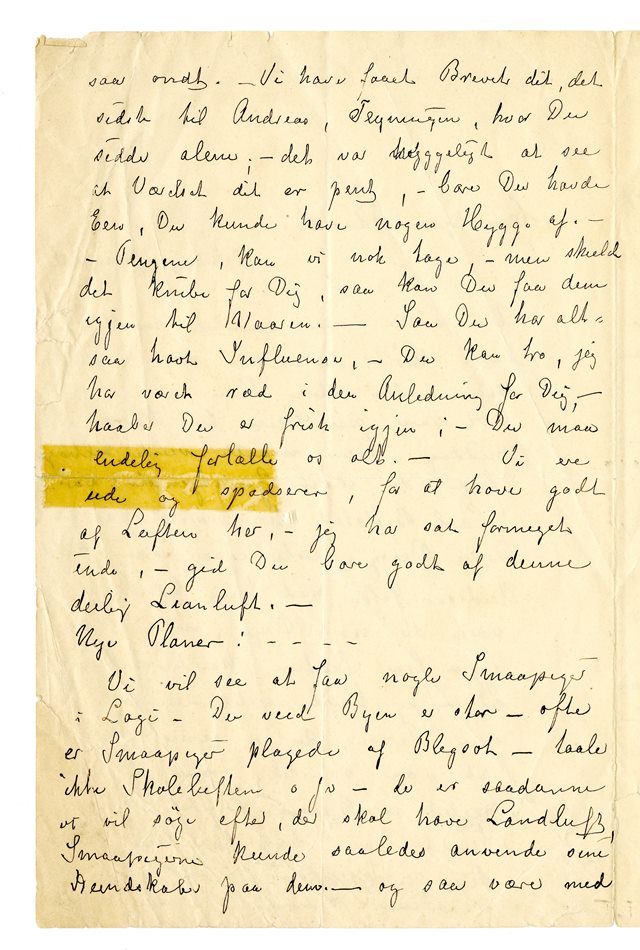 saa ondt. – Vi have faaet Brevet dit, det
sidste til Andreas, Tegningen, hvor Du
sidder alene; – det var hyggeligt at see
at Værelset dit er pent, – bare Du havde
Een, Du kunde have nogen Hygge af. –
– Pengene, kan vi nok tage, – men skulde
det knibe for Dig, saa kan Du faa dem
igjen til Vaaren. – Saa Du har alt-
saa havt Influenza, – Du kan tro, jeg
har været ræd i den Anledning for Dig, –
haaber Du er frisk igjen; – Du maa
endelig fortælle os alt. – Vi ere
ude og spadserer, for at have godt
af Luften her, – jeg har sat formeget
inde, – gid Du bare godt af denne
deilig Lianluft. –
Nye Planer! - - - -
Vi vil see at faa nogle Smaapiger
i Logi – Du veed Byen er stor – ofte
er Smaapiger plagede af Blegsot – taale
ikke Skoleluften o s v – de er saadanne
vi vil søge efter, der skal have Landluft,
Smaapigerne kunde saaledes anvende sine
Kundskaber paa dem. – og saa være med